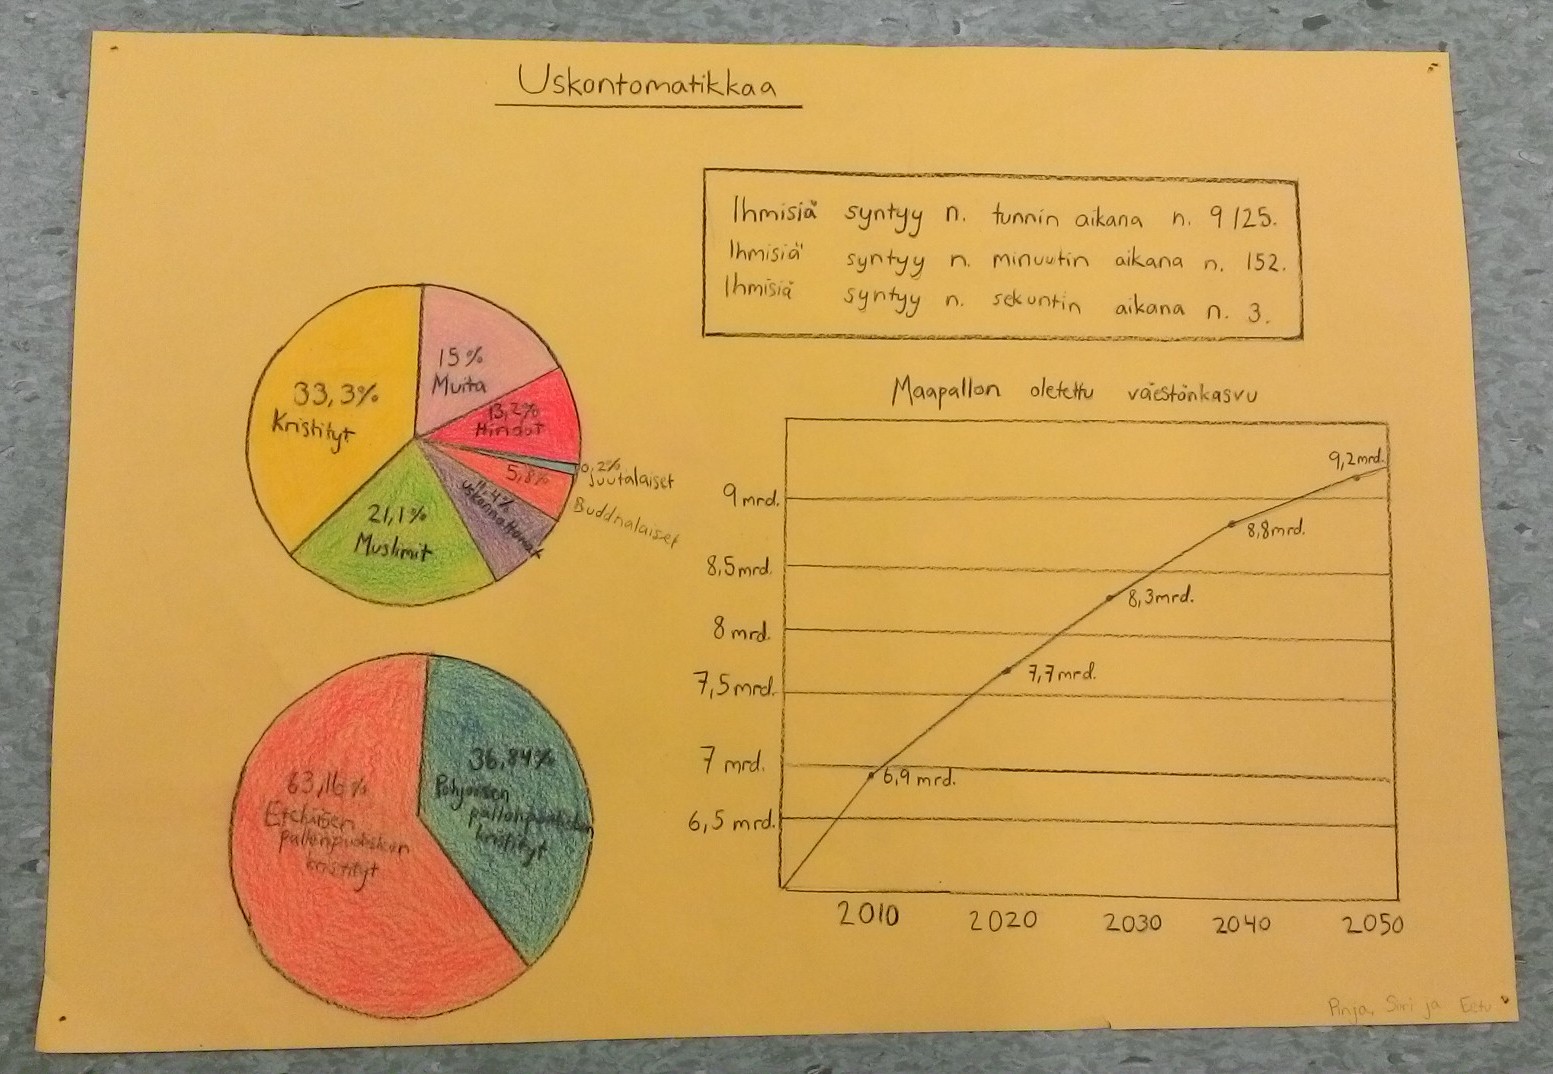 Uskontomatikkaa
Ihmisiä syntyy n. tunnin aikana n. 9125.
Ihmisiä syntyy n. minuutin aikana n. 152.
Ihmisiä syntyy n. sekuntin aikana n. 3.
33,3%
Kristityt
15%
Muita
13,2%
Hindut
0,2%
Juutalaiset
5,8%
Buddhalaiset
11,4%
Uskonnottomat
21,1%
Muslimit
63,16%
Eteläisen
pallonpuoliskon
kristityt
36,84%
Pohjoisen
pallonpuoliskon
kristityt
Maapallon oletettu väestönkasvu
9 mrd.
8,5 mrd.
8 mrd.
7,5 mrd.
7 mrd.
6,5 mrd.
9,2 mrd.
8,8 mrd.
8,3 mrd.
7,7 mrd.
6,9 mrd.
2010 2020 2030 2040 2050
Pinja, Siiri ja Eetu